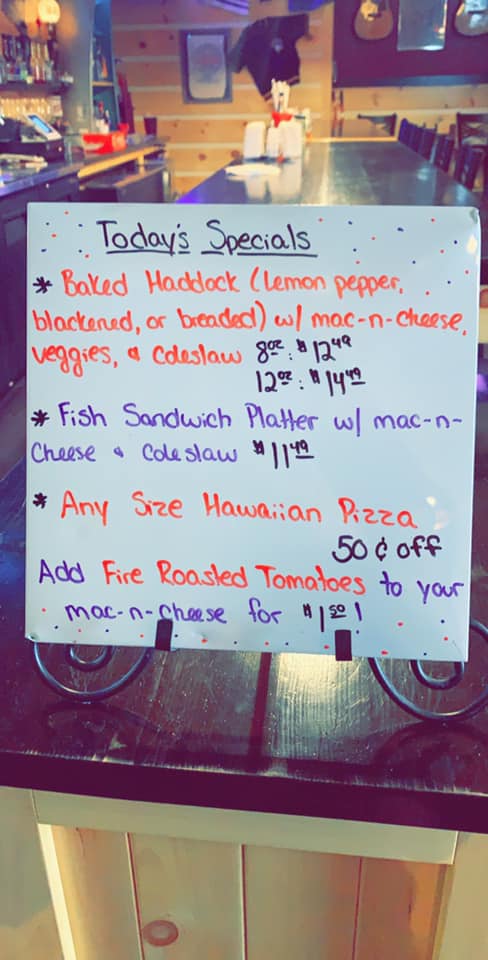 Today's Specials
* Baked Haddock (Lemon pepper,
blackened, or breaded) w/ mac-n-cheese,
veggies, & Coleslaw 8oz: $12.49
12oz: $14.49
* Fish Sandwich Platter w/ mac-n-
Cheese & Coleslaw $11.49
* Any Size Hawaiian Pizza
50¢ off
Add Fire Roasted Tomatoes to your
mac-n-cheese for $1.50!